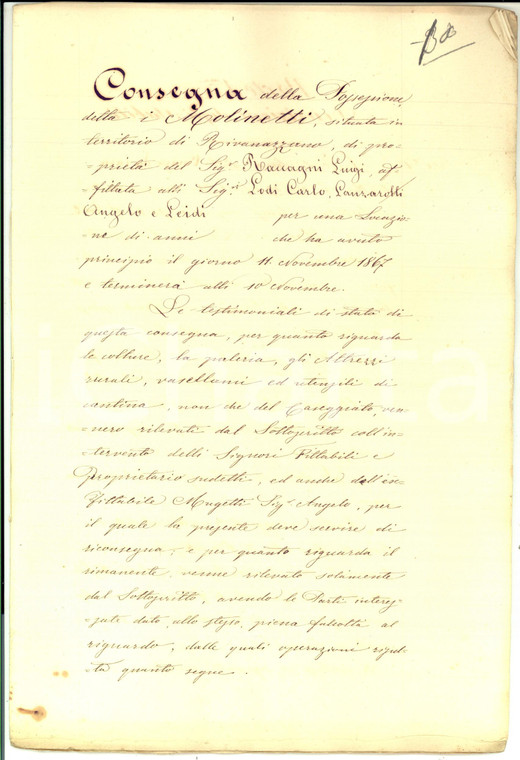 Consegna della Possessione
della i Molinetti, situata in
territorio di Rivanazzano, di pro-
-prietà del Sig.r Racagni Luigi, af-
-fittata alli Sig.ri Lodi Carlo, Lanzarotti
Angelo e Leidi per una Locazio-
-ne di anni che ha avuto
principio il giorno 11. Novembre 1867
e terminerà alli 10 Novembre.
Le testimoniali di stato di
questa consegna, per quanto riguarda
le colture, la paleria, gli Attrezzi
rurali, vasellami ed utensili di
cantina, non che del Caseggiato, ven-
-nero rilevati dal Sottoscritto coll'in-
-tervento delli Signori Fittabili e
Proprietario sudetti, ed anche dell'ex
fittabile Mugetti Sig.r Angelo, per
il quale la presente deve servire di
riconsegna, e per quanto riguarda il
rimanente venne rilevato solamente
dal Sottoscritto, avendo le Parti interes-
-sate dato allo stesso piena facoltà al
riguardo, dalle quali operazioni risul-
-ta quanto segue.